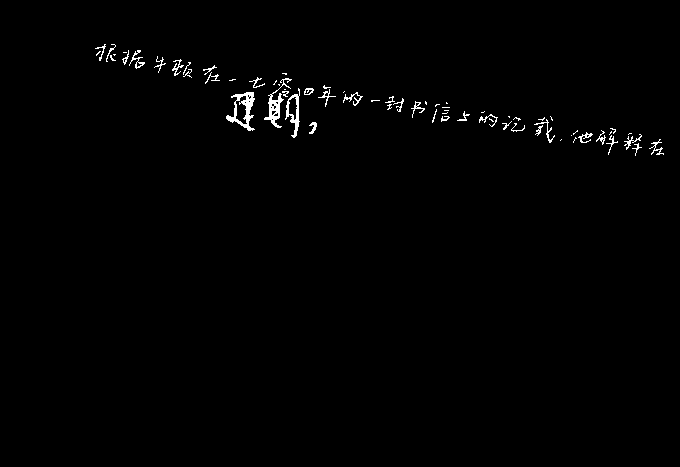 根据牛顿在一七零四年的一封书信上的记载,他解释在
期,